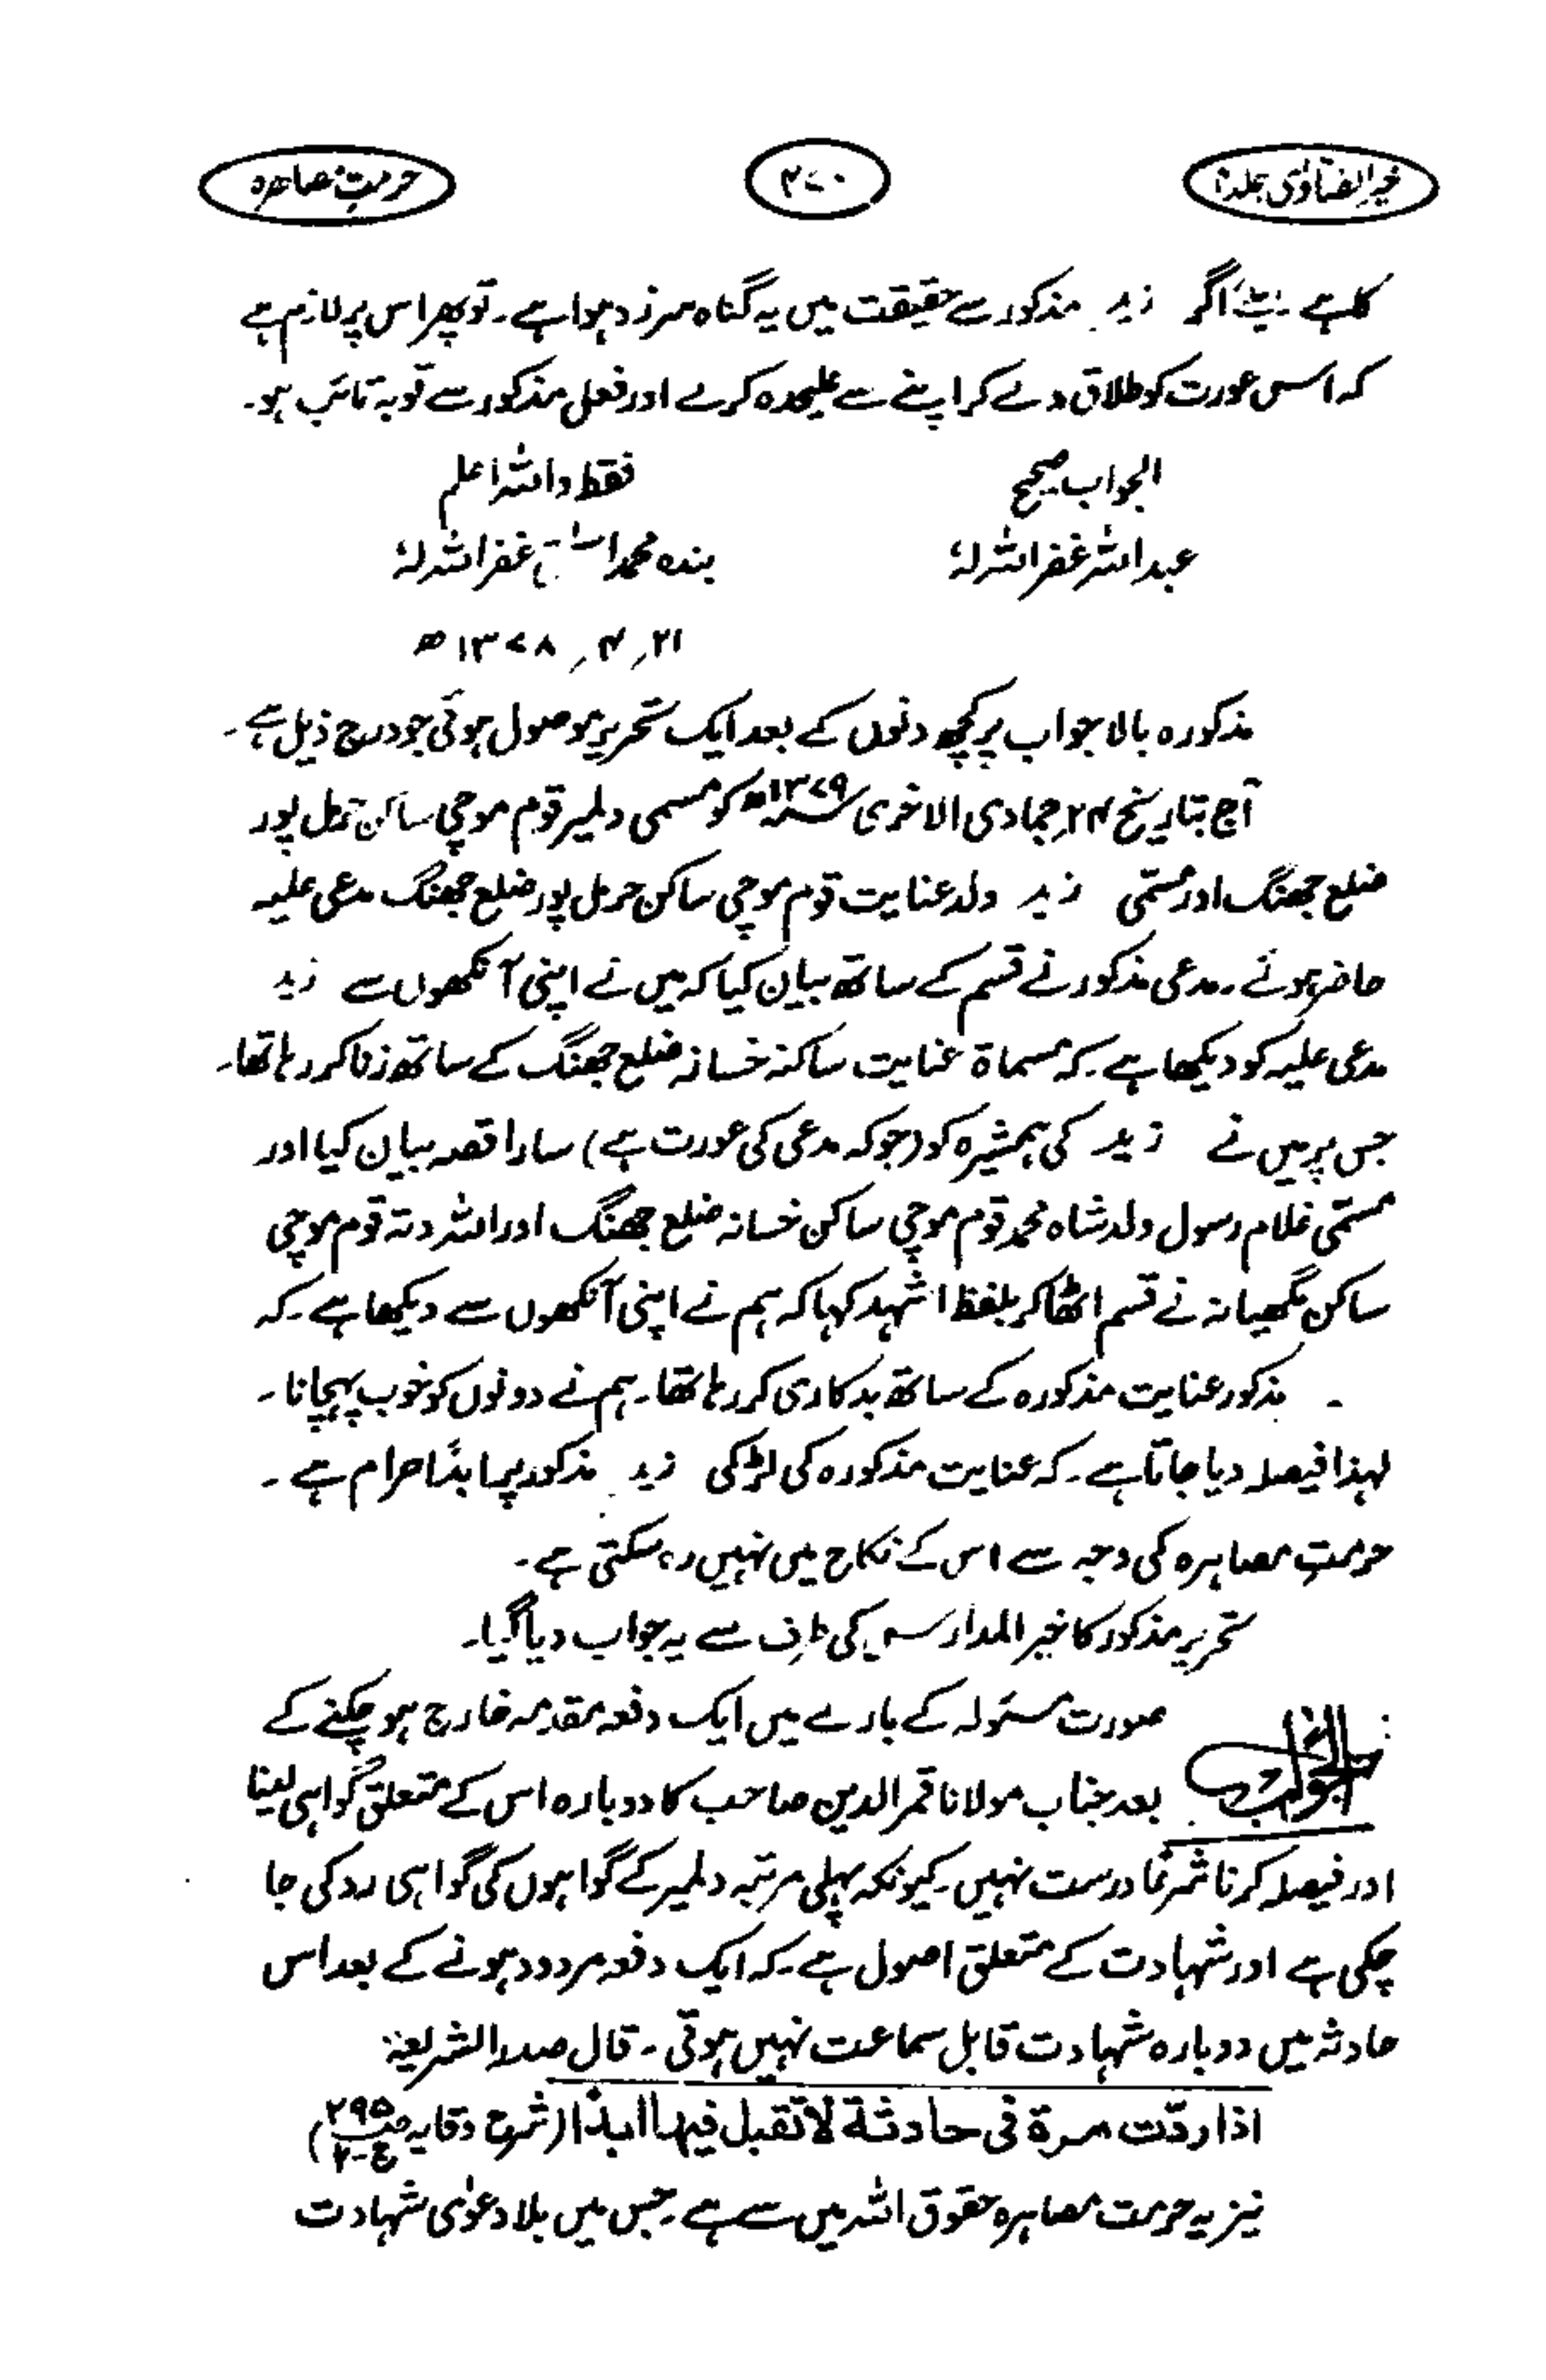 خیر الفتاوٰی جلد۴
۴۷۰
حرمتِ مصاہرہ
کلہے اگر زید مذکور سے حقیقت میں یہ گناہ سرزد ہوا ہے۔ تو پھر اس پر لازم ہے
کہ اس عورت کو طلاق دے کر اپنے سے علیحدہ کرے اور فعل مذکور سے توبہ تائب ہو۔
الجواب صحیح
فقط واللہ اعلم
عبداللہ غفر اللہ لہٗ
بندہ محمد غفر اللہ لہٗ
۲۱؍ ۴؍ ۱۳۷۸ ھ
مذکورہ بالا جواب پر کچھ دنوں کے بعد ایک تحریر موصول ہوئی جو درج ذیل ہے۔
آج بتاریخ ۲۴؍جمادی الاخری ۱۳۷۹ھ کو مسمی دلمیر قوم موچی ساکن پور
ضلع جھنگ اور مسمّی زید ولد عنایت قوم موچی ساکن حرمل پور ضلع جھنگ مدعی علیہ
حاضر ہوئے۔ مدعی مذکور نے قسم کے ساتھ بیان کیا کہ میں نے اپنی آنکھوں سے زید
مدعی علیہ کو دیکھا ہے۔ کہ مسماۃ عنایت ساکنہ خسانہ ضلع جھنگ کے ساتھ زنا کر رہا تھا۔
جس پر میں نے زید کی ہمشیرہ کو (جو کہ مدعی کی عورت ہے) سارا قصہ بیان کیا اور
مسمّی غلام رسول ولد شاہ محمد قوم موچی ساکن خسانہ ضلع جھنگ اور اللہ دتہ قوم موچی
ساکن مگھیانہ نے قسم اٹھا کر بلفظ اشہد کہا کہ ہم نے اپنی آنکھوں سے دیکھا ہے۔ کہ
مذکور عنایت مذکورہ کے ساتھ بدکاری کر رہا تھا۔ ہم نے دونوں کو خوب پہچانا۔
لہذا فیصلہ دیا جاتا ہے۔ کہ عنایت مذکورہ کی لڑکی زید مذکور پر ابدًا حرام ہے۔
حرمتِ مصاہرہ کی وجہ سے اس کے نکاح میں نہیں رہ سکتی ہے۔
تحریر مذکور کا خیر المدارس کی طرف سے یہ جواب دیا گیا۔
الجواب صورت مسئولہ کے بارے میں ایک دفعہ مقدمہ خارج ہو چکنے کے
بعد جناب مولانا قمر الدین صاحب کا دوبارہ اس کے متعلق گواہی لینا
اور فیصلہ کرنا شرعًا درست نہیں۔ کیونکہ پہلی مرتبہ دلمیر کے گواہوں کی گواہی رد کی جا
چکی ہے اور شہادت کے متعلق اصول ہے۔ کہ ایک دفعہ مردود ہونے کے بعد اس
حادثہ میں دوبارہ شہادت قابل سماعت نہیں ہوتی۔ قال صدر الشریعۃ
اذا ردّت مرۃ فی حادثۃ لا تقبل فیہا ابدًا (شرح وقایہ ص۲۹۵ ج۔۲)
نیز یہ حرمت مصاہرہ حقوق اللہ میں سے ہے۔ جس میں بلا دعوٰی شہادت